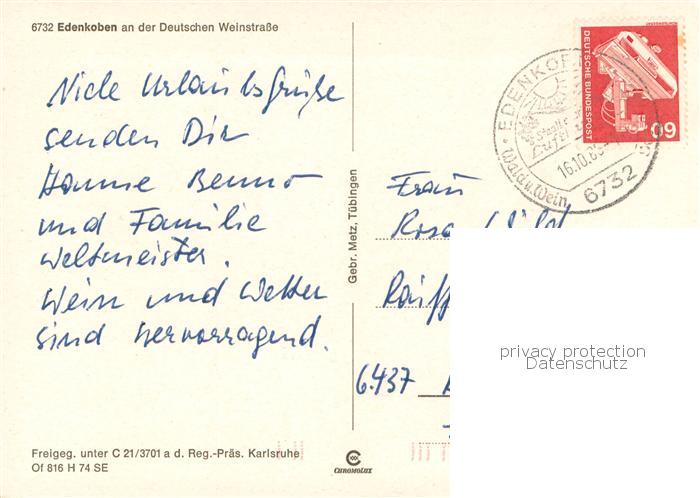 6732 Edenkoben an der Deutschen Weinstraße
Viele Urlaubsgrüße
senden Dir
Hanne Benno
und Familie
Weltmeister.
Wein und Wetter
sind hervorragend.
Freigeg. unter C 21/3701 a d. Reg.-Präs. Karlsruhe
Of 816 H 74 SE
Gebr. Metz, Tübingen
CHROMOLUX
DEUTSCHE BUNDESPOST
60
EDENKO
Luft
Wald u. Wein
16.10.8
6732
Frau
Rosa
6437
privacy protection
Datenschutz